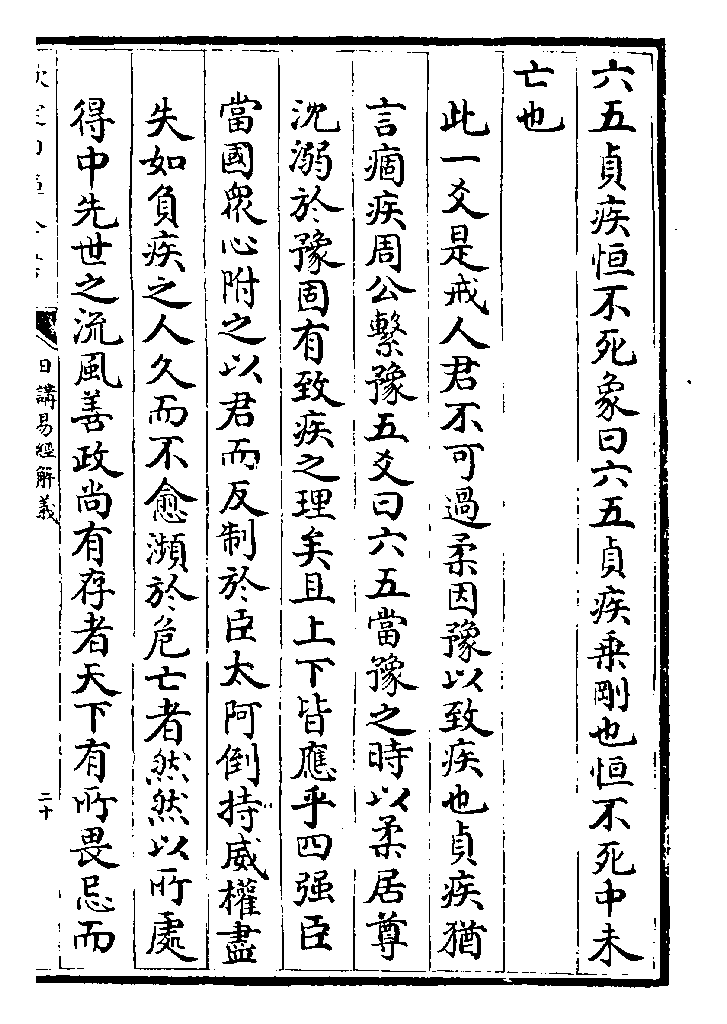 六五貞疾恒不死象曰六五貞疾乗剛也恒不死中未
亡也
此一爻是戒人君不可過柔因豫以致疾也貞疾猶
言痼疾周公繫豫五爻曰六五當豫之時以柔居尊
沈溺於豫固有致疾之理矣且上下皆應乎四强臣
當國衆心附之以君而反制於臣太阿倒持威權盡
失如負疾之人久而不愈瀕於危亡者然然以所處
得中先世之流風善政尚有存者天下有所畏忌而
日講易經解義
二十